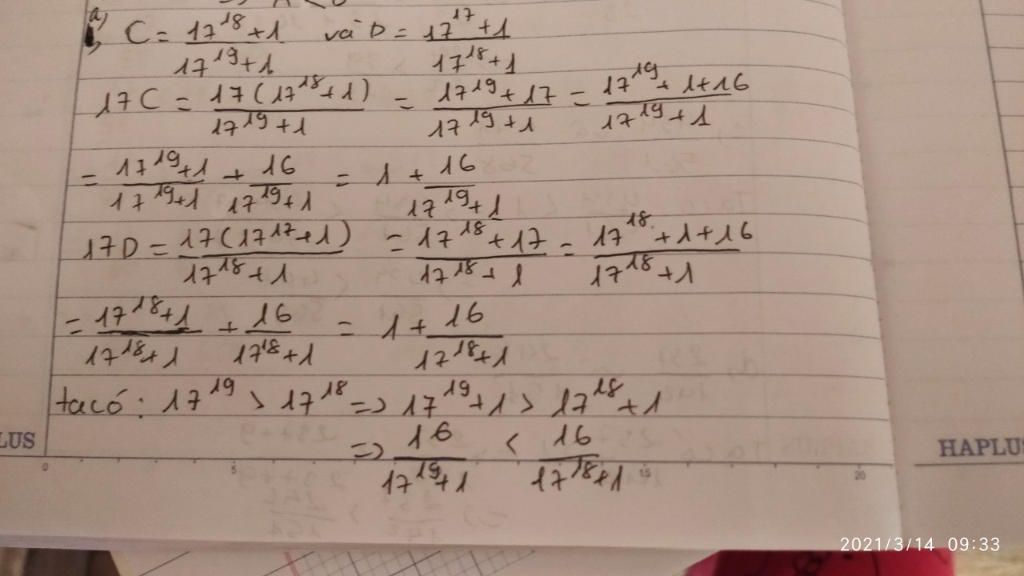 a) C = \frac{17^{18}+1}{17^{19}+1} và D = \frac{17^{17}+1}{17^{18}+1}
17C = \frac{17(17^{18}+1)}{17^{19}+1} = \frac{17^{19}+17}{17^{19}+1} = \frac{17^{19}+1+16}{17^{19}+1}
= \frac{17^{19}+1}{17^{19}+1} + \frac{16}{17^{19}+1} = 1 + \frac{16}{17^{19}+1}
17D = \frac{17(17^{17}+1)}{17^{18}+1} = \frac{17^{18}+17}{17^{18}+1} = \frac{17^{18}+1+16}{17^{18}+1}
= \frac{17^{18}+1}{17^{18}+1} + \frac{16}{17^{18}+1} = 1 + \frac{16}{17^{18}+1}
ta có: 17^{19} > 17^{18} => 17^{19}+1 > 17^{18}+1
=> \frac{16}{17^{19}+1} < \frac{16}{17^{18}+1}
PLUS HAPLUS
0 5 15 20
2021/3/14 09:33